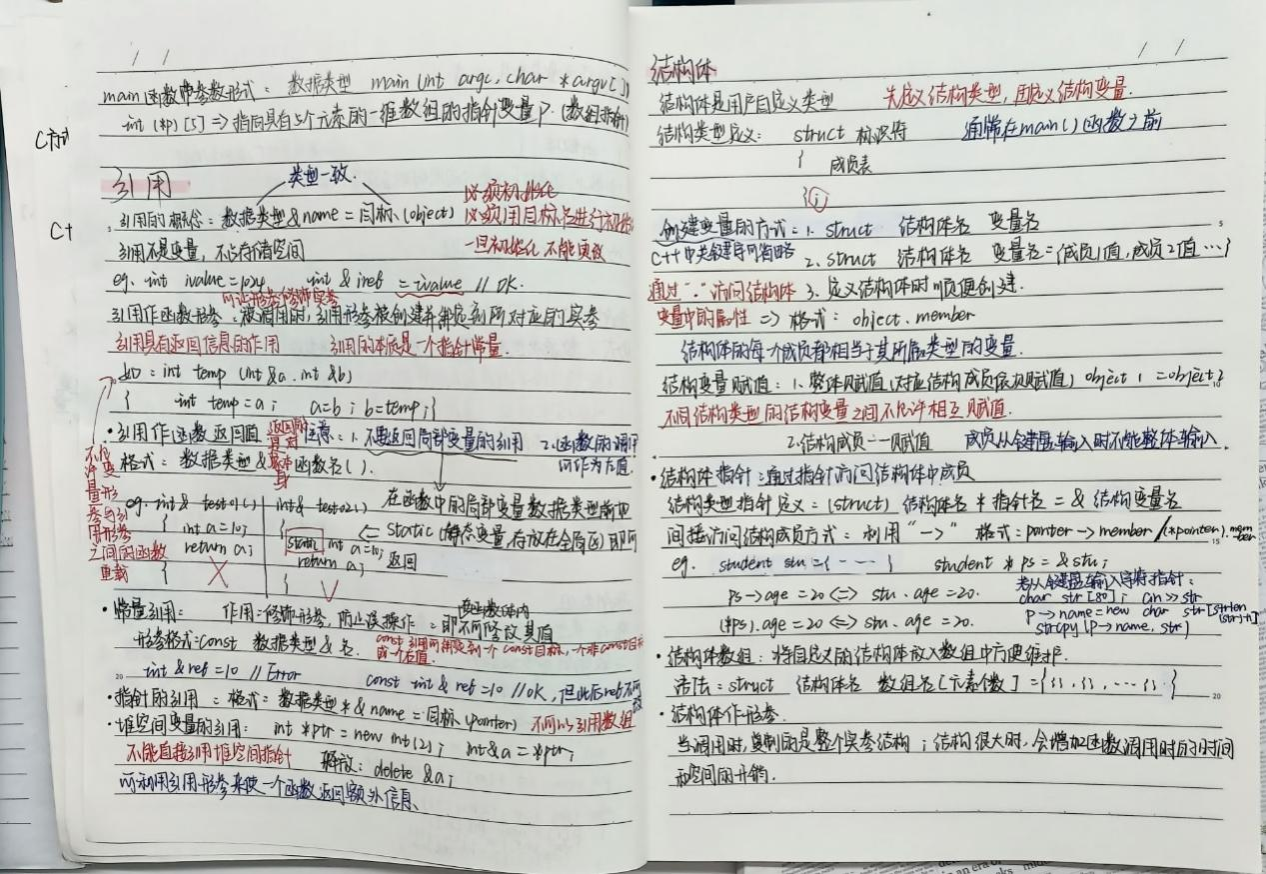 main函数带参数形式：数据类型 main (int argc, char *argv[])
int (*p)[5] => 指向具有5个元素的一维数组的指针变量P.（数组指针）
引用
类型一致
引用的概念：数据类型 & name = 目标 (object)
必须初始化
必须用目标名进行初始化
引用不是变量，不占存储空间
一旦初始化，不能更改
eg. int ivalue = 1024 int & iref = ivalue // OK.
可让形参修饰实参
引用作函数形参：被调用时，引用形参被创建并绑定到所对应的实参
引用具有返回信息的作用 引用的本质是一个指针常量.
如：int temp (int &a. int &b)
{ int temp = a; a=b; b=temp;}
·引用作函数返回值 注意：1. 不要返回局部变量的引用 2.函数的调用可作为左值.
格式：数据类型 & 函数名 ( ).
在函数中的局部变量数据类型前加
eg. int & test01() int & test02()
{ int a=10; { static int a=10;
<= static (静态变量，存放在全局区) 即可
return a; return a; 返回
} }
之间的函数
重载
·常量引用： 作用：修饰形参，防止误操作：即不可修改其值
形参格式：const 数据类型 & 名.
const引用可绑定到一个const目标，一个非const目标或一个右值.
int & ref = 10 // Error const int & ref = 10 // OK, 但此后ref不可
·指针的引用：格式：数据类型 * & name = 目标 (pointer) 不可以引用数组
·堆空间变量的引用： int *ptr = new int(2); int &a = *ptr;
不能直接引用堆空间指针 释放：delete &a;
可利用引用形参来使一个函数返回额外信息.
结构体
结构体是用户自定义类型 先定义结构类型，因定义结构变量.
结构类型定义： struct 标识符 通常在main()函数之前
{ 成员表
};
创建变量的方式：1. struct 结构体名 变量名
C++中关键字可省略 2. struct 结构体名 变量名={成员1值, 成员2值 ··· }
通过"."访问结构体 3. 定义结构体时顺便创建.
变量中的属性 => 格式：object . member
结构体的每个成员都相当于其所属类型的变量.
结构变量赋值：1. 整体赋值 (对应结构成员依次赋值) object 1 = object 2
不同结构类型的结构变量之间不允许相互赋值.
2. 结构成员一一赋值 成员从键盘输入时不能整体输入.
·结构体指针：通过指针访问结构体中成员
结构类型指针定义：(struct) 结构体名 * 指针名 = & 结构变量名
间接访问结构成员方式：利用 "->" 格式：ponter -> member / (*pointer).member
eg. student stu = { ---- } student * ps = & stu;
ps -> age = 20 <=> stu . age = 20.
若从键盘输入字符指针：
char str [80]; cin >> str
(*ps). age = 20 <=> stu. age = 20.
p -> name = new char str[strlen(str)+1]
strcpy (p -> name, str)
·结构体数组：将自定义的结构体放入数组中方便维护.
语法：struct 结构体名 数组名 [元素个数] = {{}, {}, ···· {} }
·结构体作形参.
当调用时，复制的是整个实参结构；结构很大时，会增加函数调用时的时间
和空间的开销.